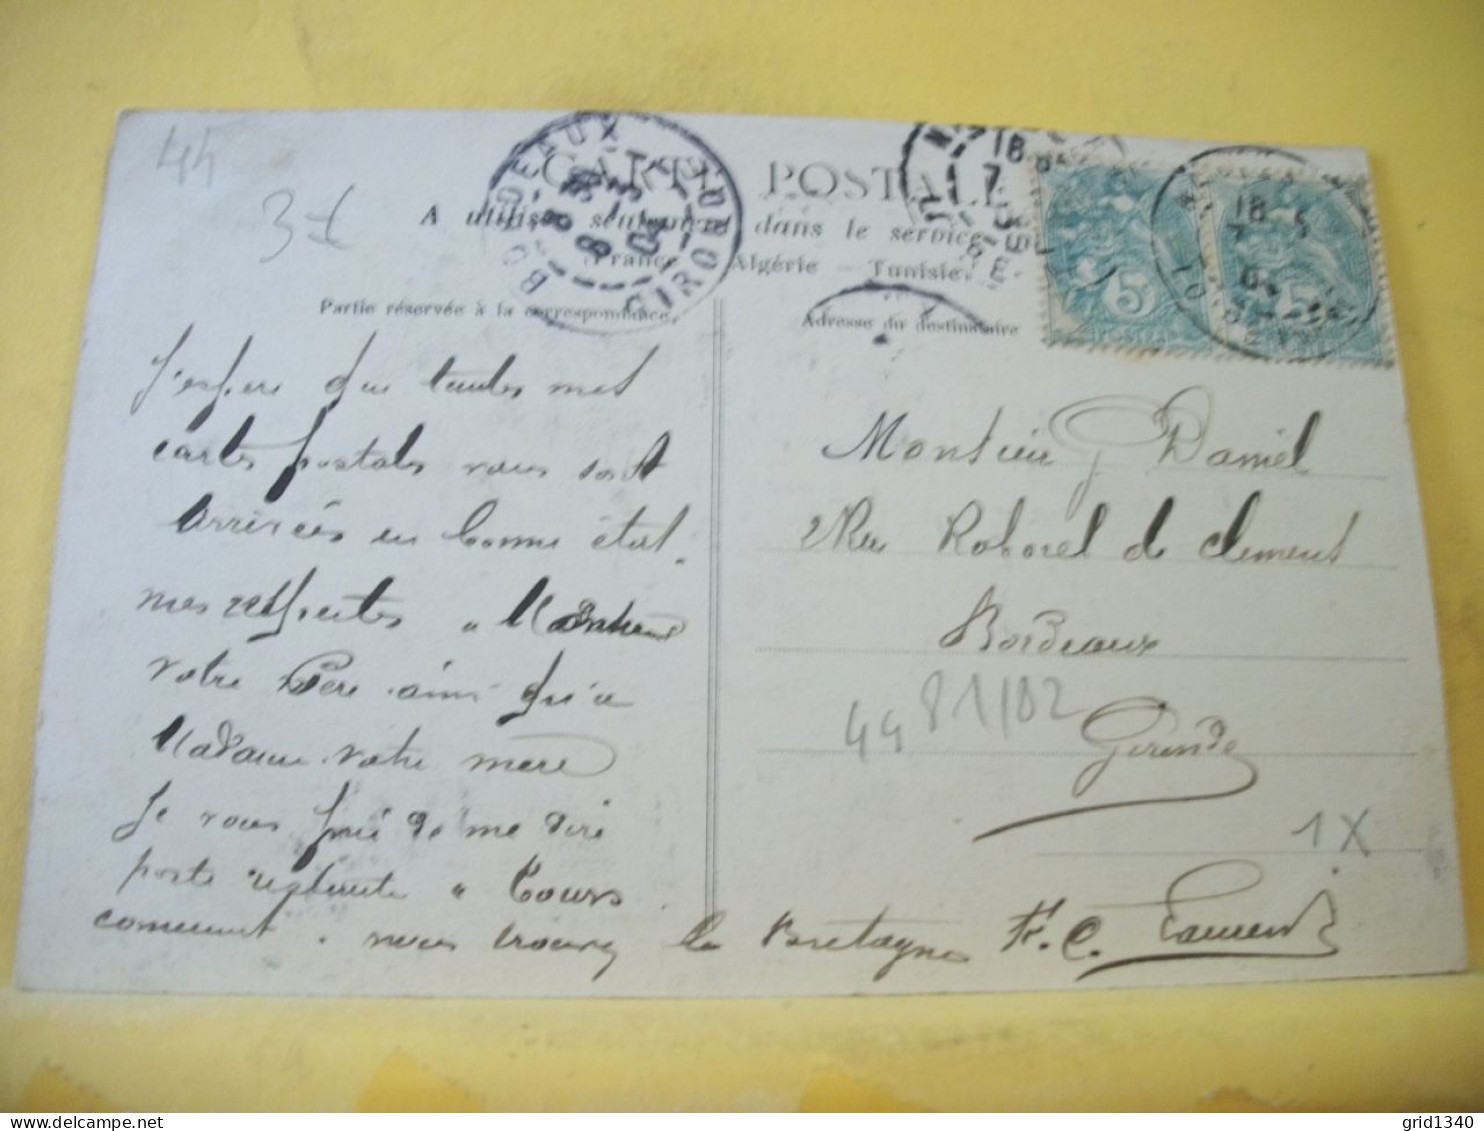 44
3£
BORDEAUX
GIRONDE
CARTE POSTALE
A utiliser seulement dans le service
France Algérie - Tunisie
Partie réservée à la correspondance.
Adresse du destinataire
18
7
5
5
J'espere que toutes mes
cartes postales vous sont
arrivées en bonne état.
mes respectes a Monsieur
votre Père ainsi qu'a
Madame votre mere
Je vous prie de me dire
poste restante a Tours
comment nous trouvez la Bretagne
Monsieur Daniel
2 Rue Roborel de Clement
Bordeaux
Gironde
44 81/02
1X
grid1340